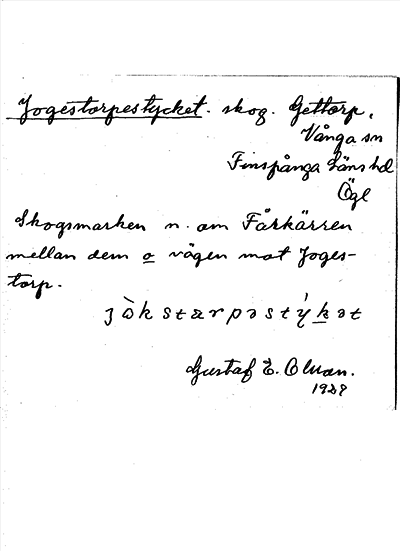 Jogestorpestycket. skog. Gettorp,
Vånga sn
Finspånga läns hd
Ögl
Skogsmarken n. om Fårkärren
mellan dem o vägen mot Joges-
torp.
jòkstærpəstýkət
Gustaf E. Olsson.
1929